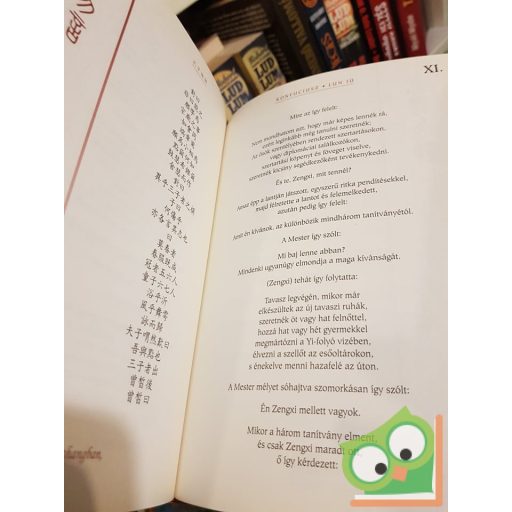 對曰
非曰能之
願學焉
宗廟之事
如會同
端章甫
願為小相焉
點爾何如
鼓瑟希
鏗爾
舍瑟而作
對曰
異乎三子者之撰
子曰
何傷乎
亦各言其志也
曰
莫春者
春服既成
冠者五六人
童子六七人
浴乎沂
風乎舞雩
詠而歸
夫子喟然歎曰
吾與點也
三子者出
曾皙後
曾皙曰
KONFUCIUSZ • LUN JÜ
XI.
Mire az így felelt:
Nem mondhatom azt, hogy már képes lennék rá,
ezért leginkább még tanulni szeretnék.
Az ősök szentélyében rendezett szertartásokon,
vagy diplomáciai találkozókon,
szertartási köpenyt és föveget viselve,
szeretnék kicsiny segédkezőként tevékenykedni.
És te, Zengxi, mit tennél?
Amaz épp a lantján játszott, egyszerű ritka pendítésekkel,
majd félretette a lantot és felemelkedett,
azután pedig így felelt:
Amit én kívánok, az különbözik mindhárom tanítványétól.
A Mester így szólt:
Mi baj lenne abban?
Mindenki ugyanúgy elmondja a maga kívánságát.
(Zengxi) tehát így folytatta:
Tavasz legvégén, mikor már
elkészültek az új tavaszi ruhák,
szeretnék öt vagy hat felnőttel,
hozzá hat vagy hét gyermekkel
megmártózni a Yi-folyó vizében,
élvezni a szellőt az esőoltárokon,
s énekelve menni hazafelé az úton.
A Mester mélyet sóhajtva szomorkásan így szólt:
Én Zengxi mellett vagyok.
Mikor a három tanítvány elment,
és csak Zengxi maradt
ő így kérdezett:
LUD
LUM
LUD
LUM